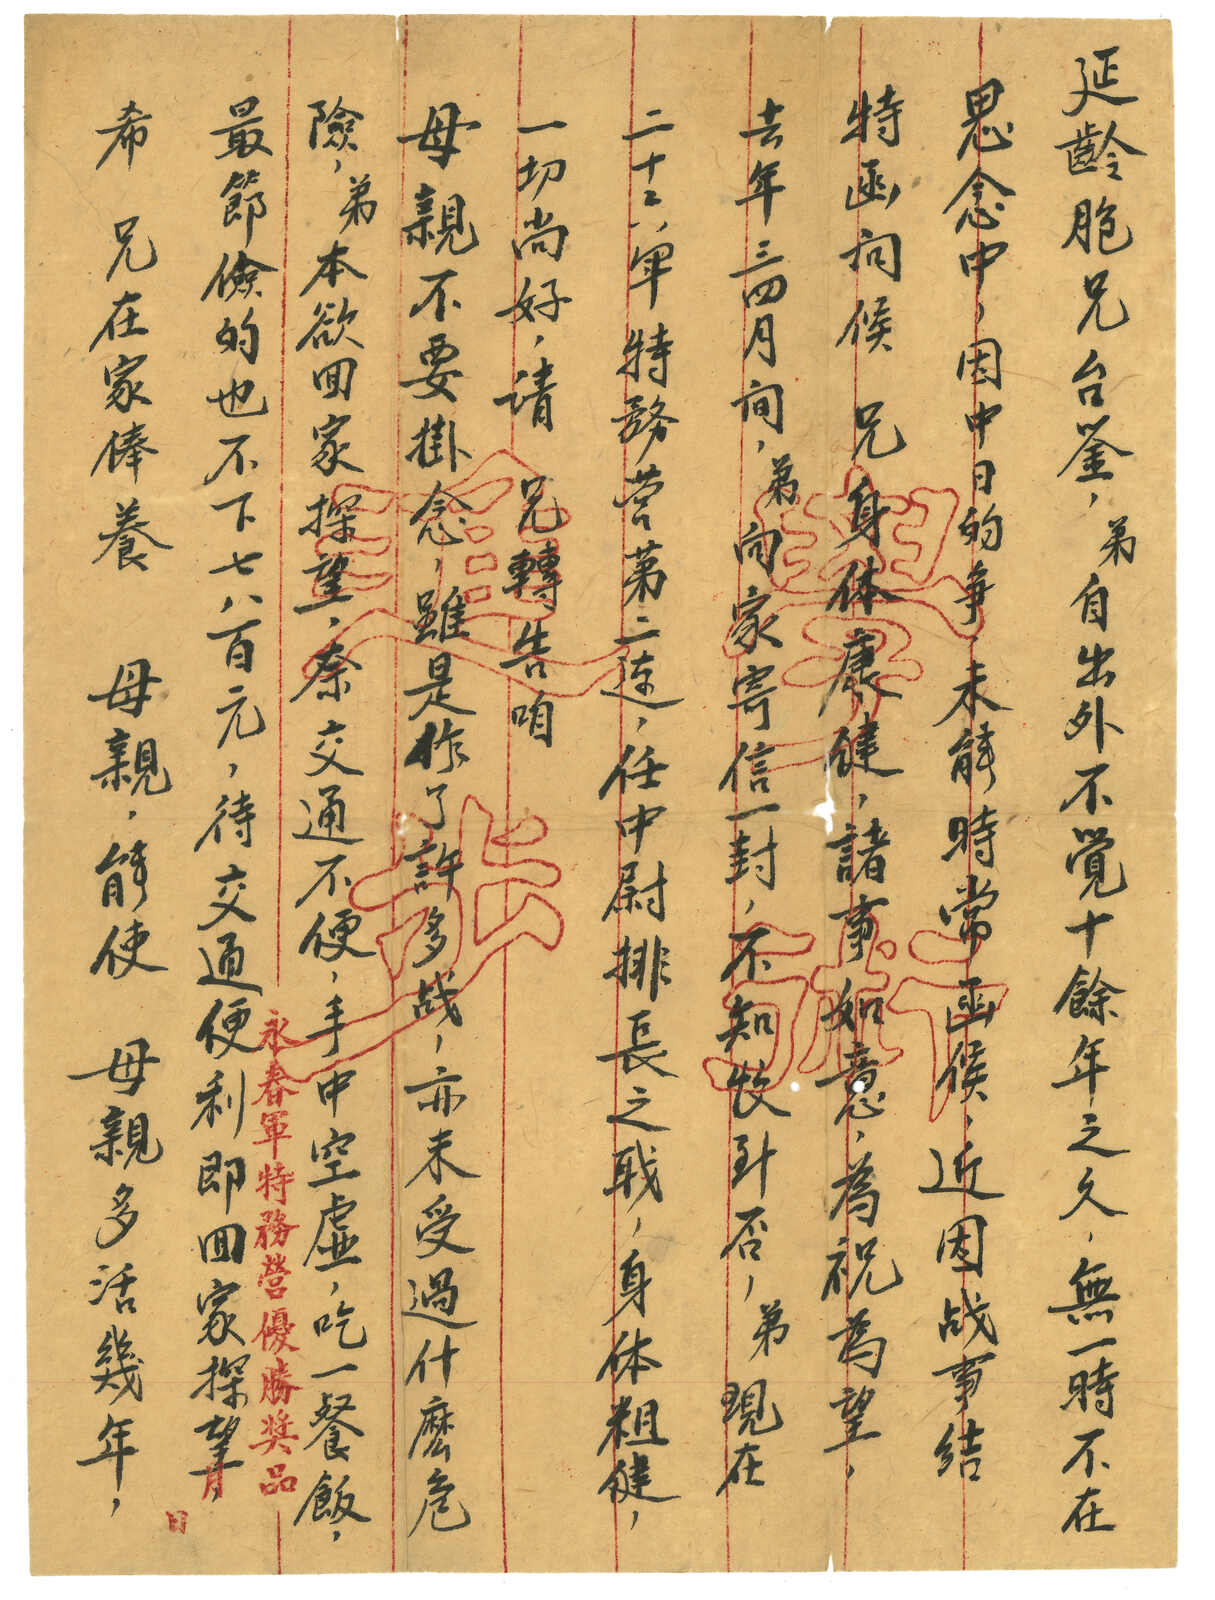 延齡胞兄台鉴，弟自出外不覺十餘年之久，無一時不在
思念中，因中日的爭，未能時常函候，近因战事结
特函詢候　兄身体康健，諸事如意，為祝為望，
去年三四月间，弟向家寄信一封，不知收到否，弟現在
二十六軍特務营第二连，任中尉排長之职，身体粗健，
一切尚好，请　兄轉告咱
母親不要掛念，雖是作了許多战，亦未受過什麽危
險，弟本欲回家探望，奈交通不便，手中空虚，吃一餐飯，
最節儉的也不下七八百元，待交通便利即回家探望，
希　兄在家俸養　母親，能使　母親多活幾年，
永春軍特務營優勝奖品
月
日